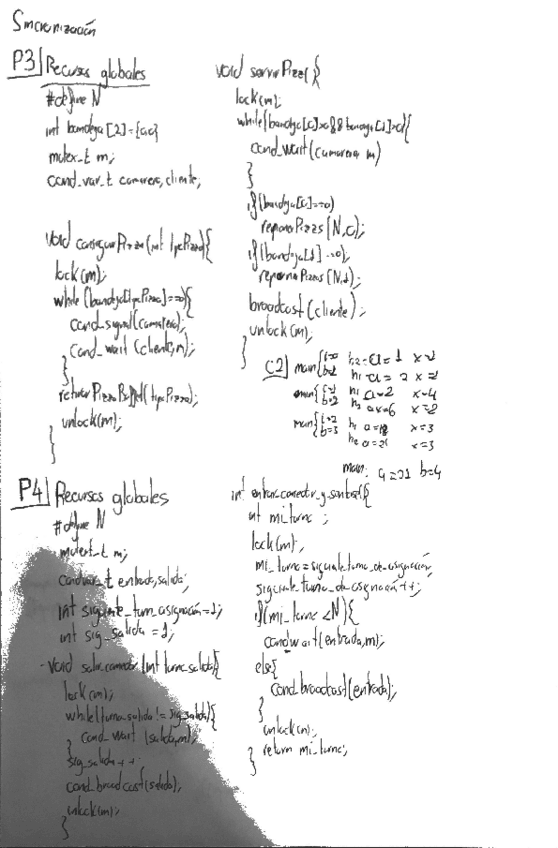 Sincronización
P3 Recursos globales
#define N
int bandeja[2]={0,0}
mutex_t m;
cond_var_t camarera, cliente;
void conseguirPizza(int tipoPizza){
lock(m);
while (bandeja[tipoPizza]==0){
cond_signal(camarera);
cond_wait (cliente,m);
}
retirarPizzaBuffet(tipoPizza);
unlock(m);
}
void servirPizza(){
lock(m);
while(bandeja[0]>0 && bandeja[1]>0){
cond_wait(camarera m)
}
if(bandeja[0]==0)
reponerPizzas(N,0);
if(bandeja[1]==0);
reponerPizzas(N,1);
broadcast(cliente);
unlock(m);
}
C2 main h2 a=1 x=2
b=2 h1 a=2 x=2
main h1 a=2 x=4
b=2 h2 x=2
main h1 x=3
b=3 h2 a=21 x=3
main: a=21 b=4
P4 Recursos globales
#define N
mutex_t m;
condvar_t entrada,salida;
int siguiente_turn_asignación=1;
int sig_salida =1;
-void salir_comedor (int turno_salida){
lock(m);
while(turno_salida!=sig_salida){
cond_wait (salida,m);
}
sig_salida++;
cond_broadcast(salida);
unlock(m);
}
int entrar_comedor_y_sentarse(){
int mi_turno ;
lock(m);
mi_turno=siguiente_turno_de_asignación;
siguiente_turno_de_asignación++;
if(mi_turno <N){
condwait(entrada,m);
else{
cond_broadcast(entrada);
}
unlock(m);
return mi_turno;
}